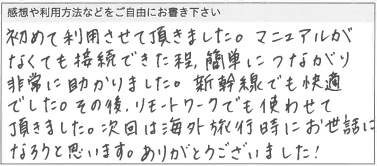 感想や利用方法などをご自由にお書き下さい
初めて利用させて頂きました。マニュアルが
なくても接続できた程、簡単につながり
非常に助かりました。新幹線でも快適
でした。その後、リモートワークでも使わせて
頂きました。次回は海外旅行時にお世話に
なろうと思います。ありがとうございました！